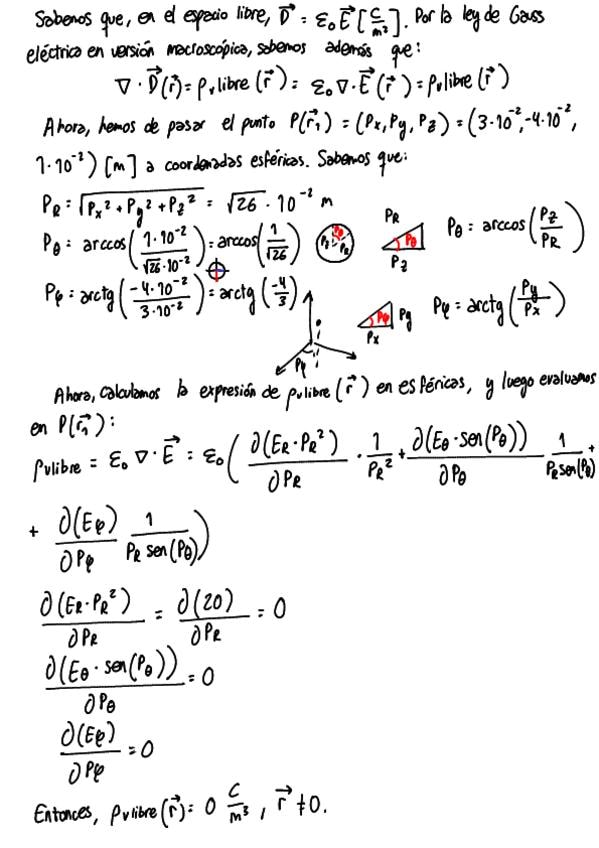 Sabemos que, en el espacio libre, D⃗ = ε₀E⃗ [C/m²]. Por la ley de Gauss
eléctrica en versión macroscópica, sabemos además que:
∇ · D⃗(r⃗) = ρvlibre(r⃗) = ε₀∇·E⃗(r⃗) = ρvlibre(r⃗)
Ahora, hemos de pasar el punto P(r⃗₁) = (Px, Py, Pz) = (3·10⁻², -4·10⁻²,
1·10⁻²) [m] a coordenadas esféricas. Sabemos que:
PR = √(Px² + Py² + Pz²) = √26 · 10⁻² m
Pθ = arccos(1·10⁻² / √26·10⁻²) = arccos(1/√26) Pz Pθ PR PR Pθ Pz Pθ = arccos(Pz/PR)
Pφ = arctg(-4·10⁻² / 3·10⁻²) = arctg(-4/3) Pφ Pφ Py Px Pφ = arctg(Py/Px)
Ahora, calculamos la expresión de ρvlibre(r⃗) en esféricas, y luego evaluamos
en P(r⃗₁):
ρvlibre = ε₀ ∇·E⃗ = ε₀(∂(ER·PR²)/∂PR · 1/PR² + ∂(Eθ·sen(Pθ))/∂Pθ 1/PRsen(Pθ) +
+ ∂(Eφ)/∂Pφ 1/PR sen(Pθ))
∂(ER·PR²)/∂PR = ∂(20)/∂PR = 0
∂(Eθ·sen(Pθ))/∂Pθ = 0
∂(Eφ)/∂Pφ = 0
Entonces, ρvlibre(r⃗) = 0 C/m³, r⃗ ≠ 0.